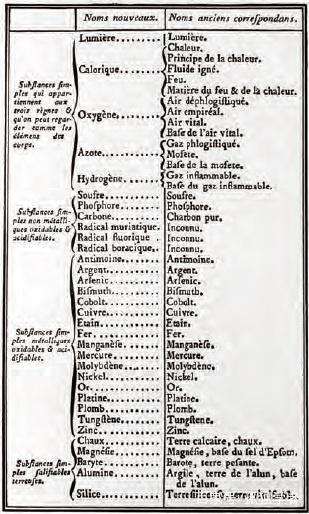 Noms nouveaux. Noms anciens correspondans.
Substances simples qui appartiennent aux trois règnes & qu'on peut regarder comme les élémens des corps.
Lumière......... Lumière.
Calorique........ Chaleur.
Principe de la chaleur.
Fluide igné.
Feu.
Matière du feu & de la chaleur.
Oxygène......... Air déphlogistiqué.
Air empiréal.
Air vital.
Base de l'air vital.
Azote........... Gaz phlogistiqué.
Mofete.
Base de la mofete.
Hydrogène....... Gaz inflammable.
Base du gaz inflammable.
Substances simples non métalliques oxidables & acidifiables.
Soufre.......... Soufre.
Phosphore....... Phosphore.
Carbone......... Charbon pur.
Radical muriatique. Inconnu.
Radical fluorique . Inconnu.
Radical boracique.. Inconnu.
Substances simples métalliques oxidables & acidifiables.
Antimoine....... Antimoine.
Argent.......... Argent.
Arsenic......... Arsenic.
Bismuth......... Bismuth.
Cobolt.......... Cobolt.
Cuivre.......... Cuivre.
Etain........... Etain.
Fer............. Fer.
Manganèse....... Manganèse.
Mercure......... Mercure.
Molybdène....... Molybdène.
Nickel.......... Nickel.
Or.............. Or.
Platine......... Platine.
Plomb........... Plomb.
Tungstène....... Tungstene.
Zinc............ Zinc.
Substances simples salifiables terreuses.
Chaux........... Terre calcaire, chaux.
Magnésie........ Magnésie, base du sel d'Epsom.
Baryte.......... Barote, terre pesante.
Alumine......... Argile, terre de l'alun, base
de l'alun.
Silice.......... Terre siliceuse, terre vitrifiable.